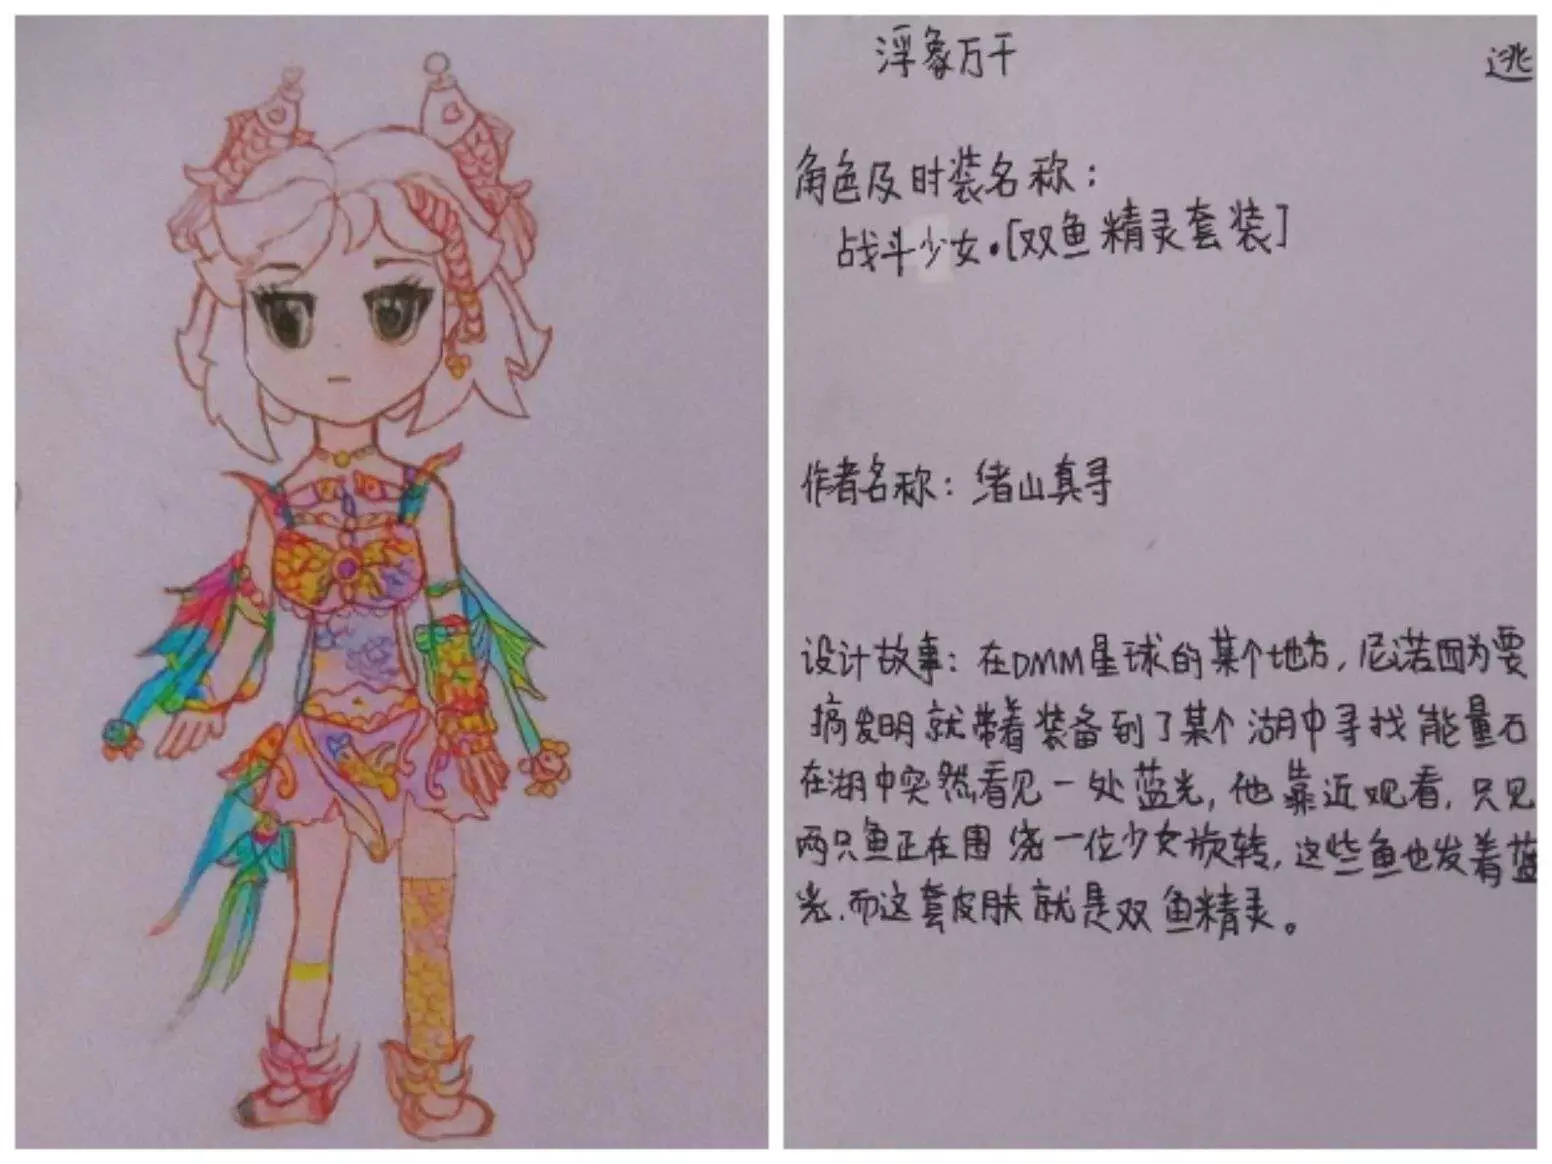 浮象万千
逃
角色及时装名称：
战斗少女·[双鱼精灵套装]
作者名称：绪山真寻
设计故事：在DMM星球的某个地方，尼诺因为要
搞发明就带着装备到了某个湖中寻找能量石
在湖中突然看见一处蓝光，他靠近观看，只见
两只鱼正在围绕一位少女旋转，这些鱼也发着蓝
光，而这套皮肤就是双鱼精灵。